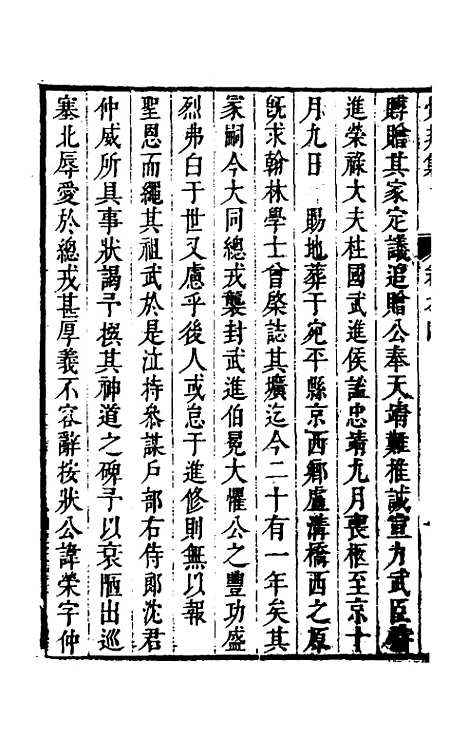 賻贈其家定議追贈公奉天靖難推誠宣力武臣
進榮祿大夫柱國武進侯謚忠靖九月喪柩至京十
月九日 賜地葬于宛平縣京西鄉盧溝橋西之原
旣求翰林學士曾棨誌其壙迄今二十有一年矣其
家嗣今大同總戎襲封武進伯冕大懼公之豐功盛
烈弗白于世又慮乎後人或怠于進修則無以報
聖恩而繩其祖武於是泣持叅謀戶部右侍郎沈君
仲威所具事狀謁予撰其神道之碑予以哀陋出巡
塞北辱愛於總戎甚厚義不容辭按狀公諱榮字仲